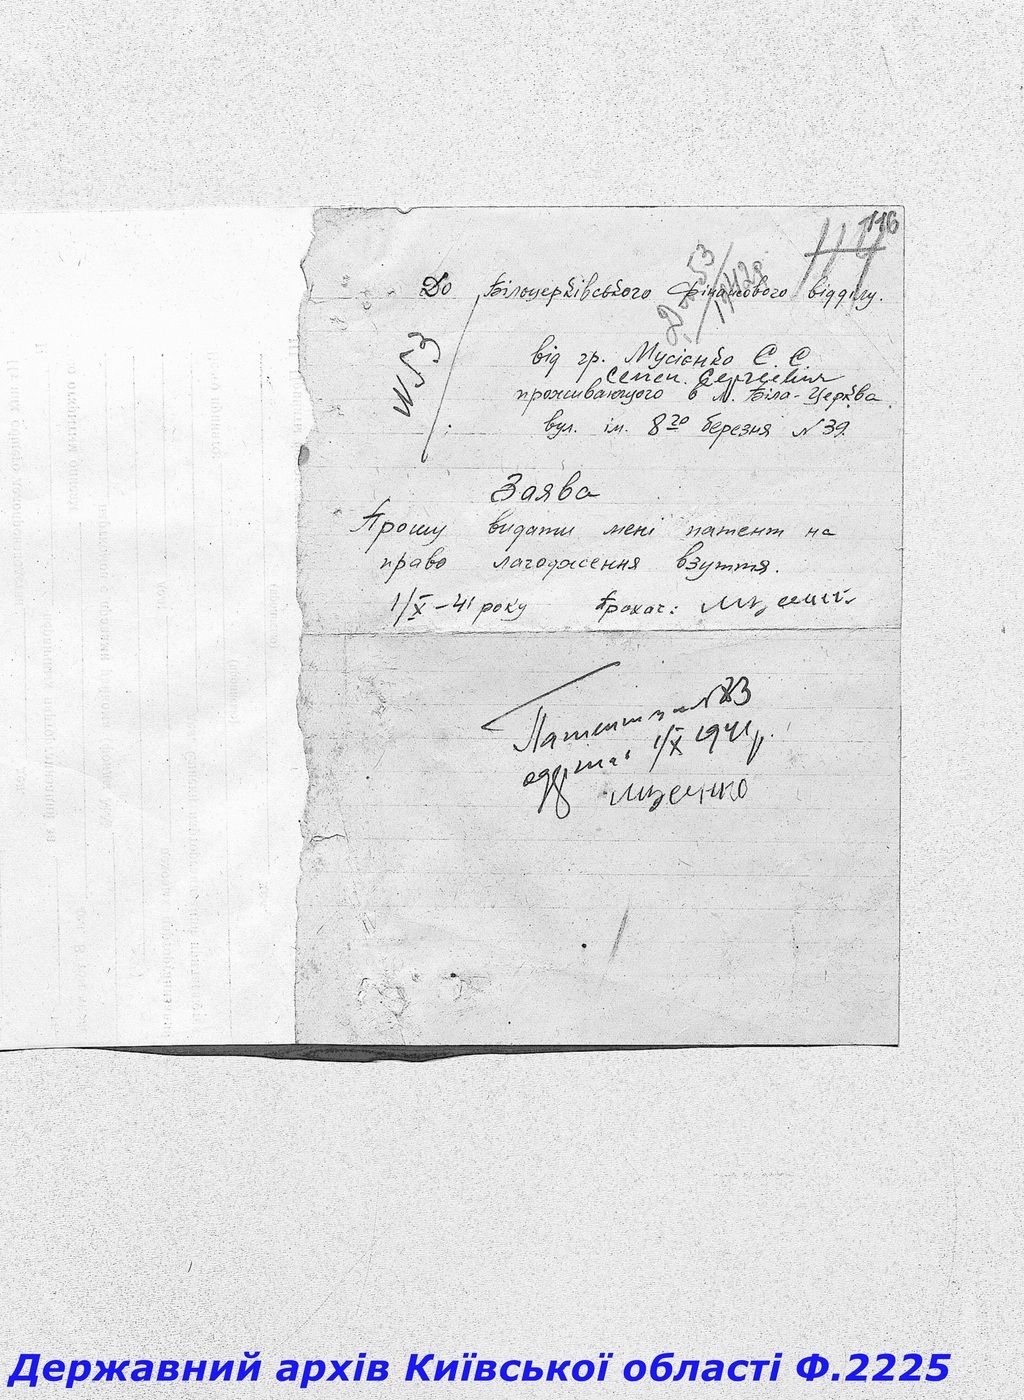 116
До Білоцерківського Фінансового відділу.
№53
від гр. Мусієнко С. С.
Семен. Сергеевич
проживающого в м. Біла-Церква
вул. ім. 8го березня №39.
Заява
Прошу видати мені патент на
право лагодження взуття.
1/X-41 року Прохач:
Патент за №
одержав 1/X 1941 р.
Державний архів Київської області Ф.2225